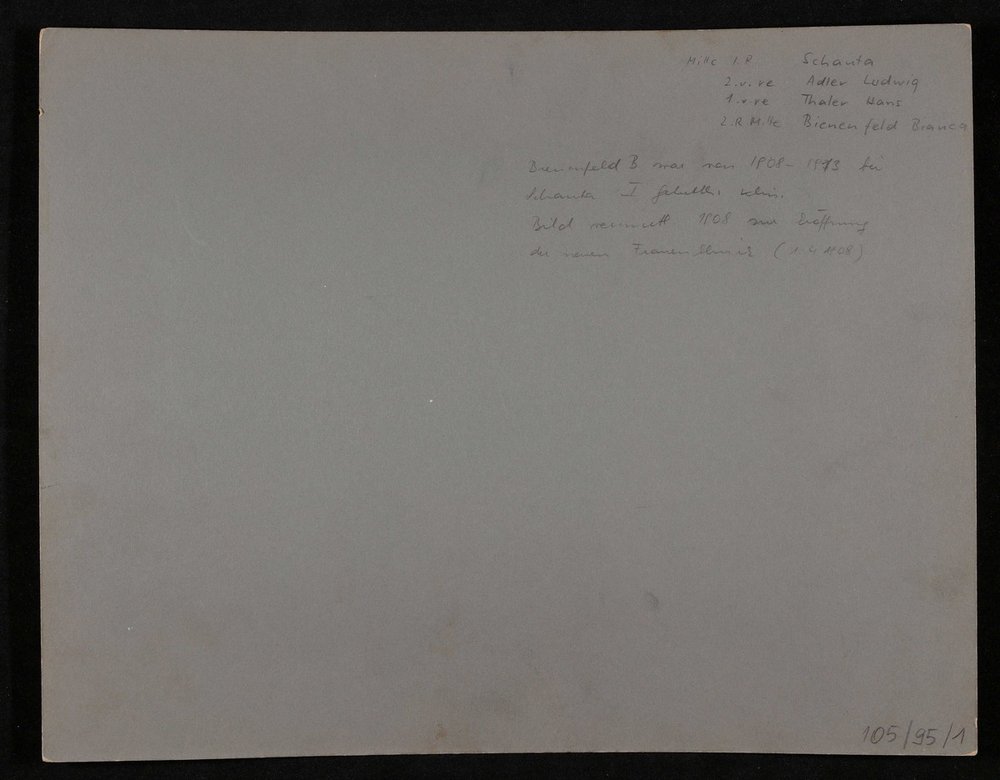 Mitte 1. R Schauta
2. v. re Adler Ludwig
1. v. re Thaler Hans
2. R Mitte Bienenfeld Bianca
Bienenfeld B war von 1908 - 1913 bei
Schauta I Geburtsh. Klin.
Bild vermutl. 1908 zur Eröffnung
der neuen Frauenklinik (1908)
105/95/1